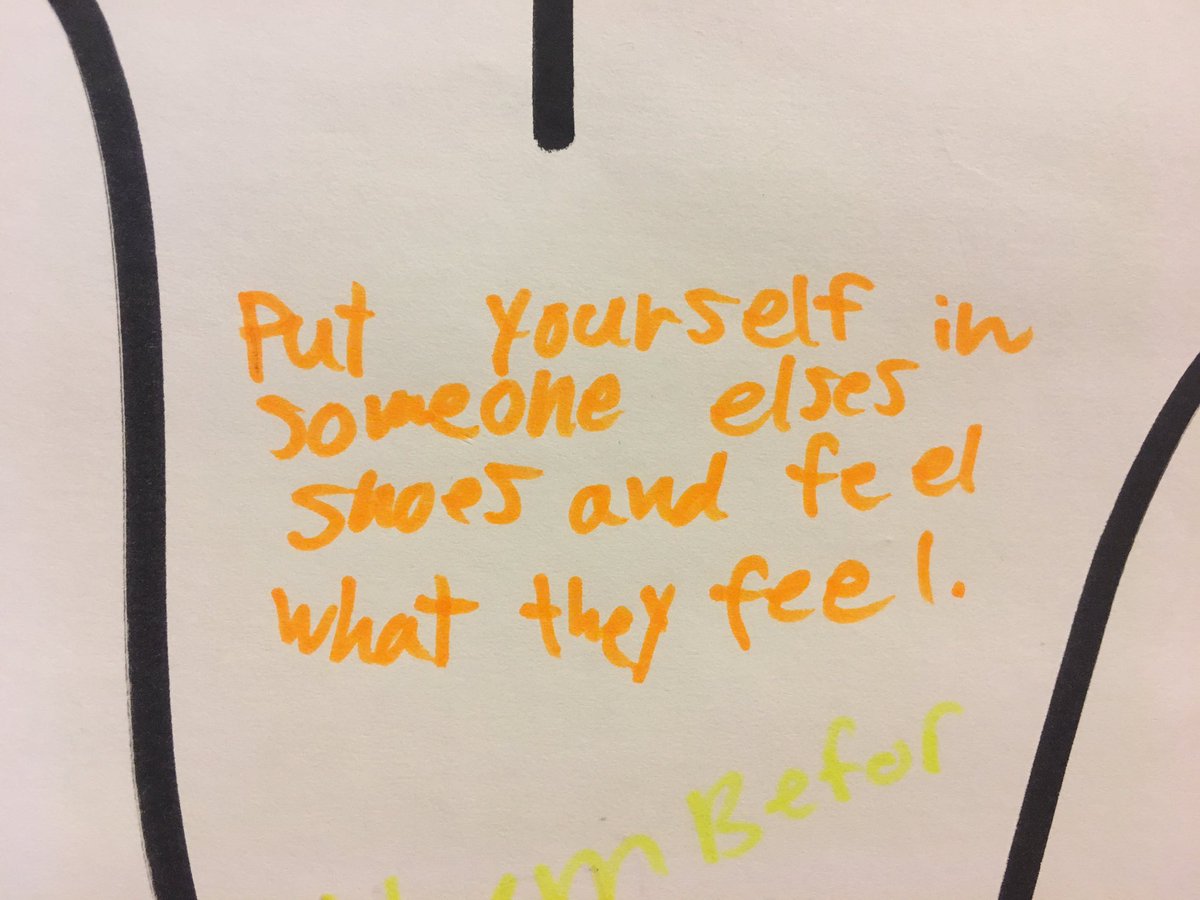 Put yourself in
someone elses
shoes and feel
what they feel.
Befor